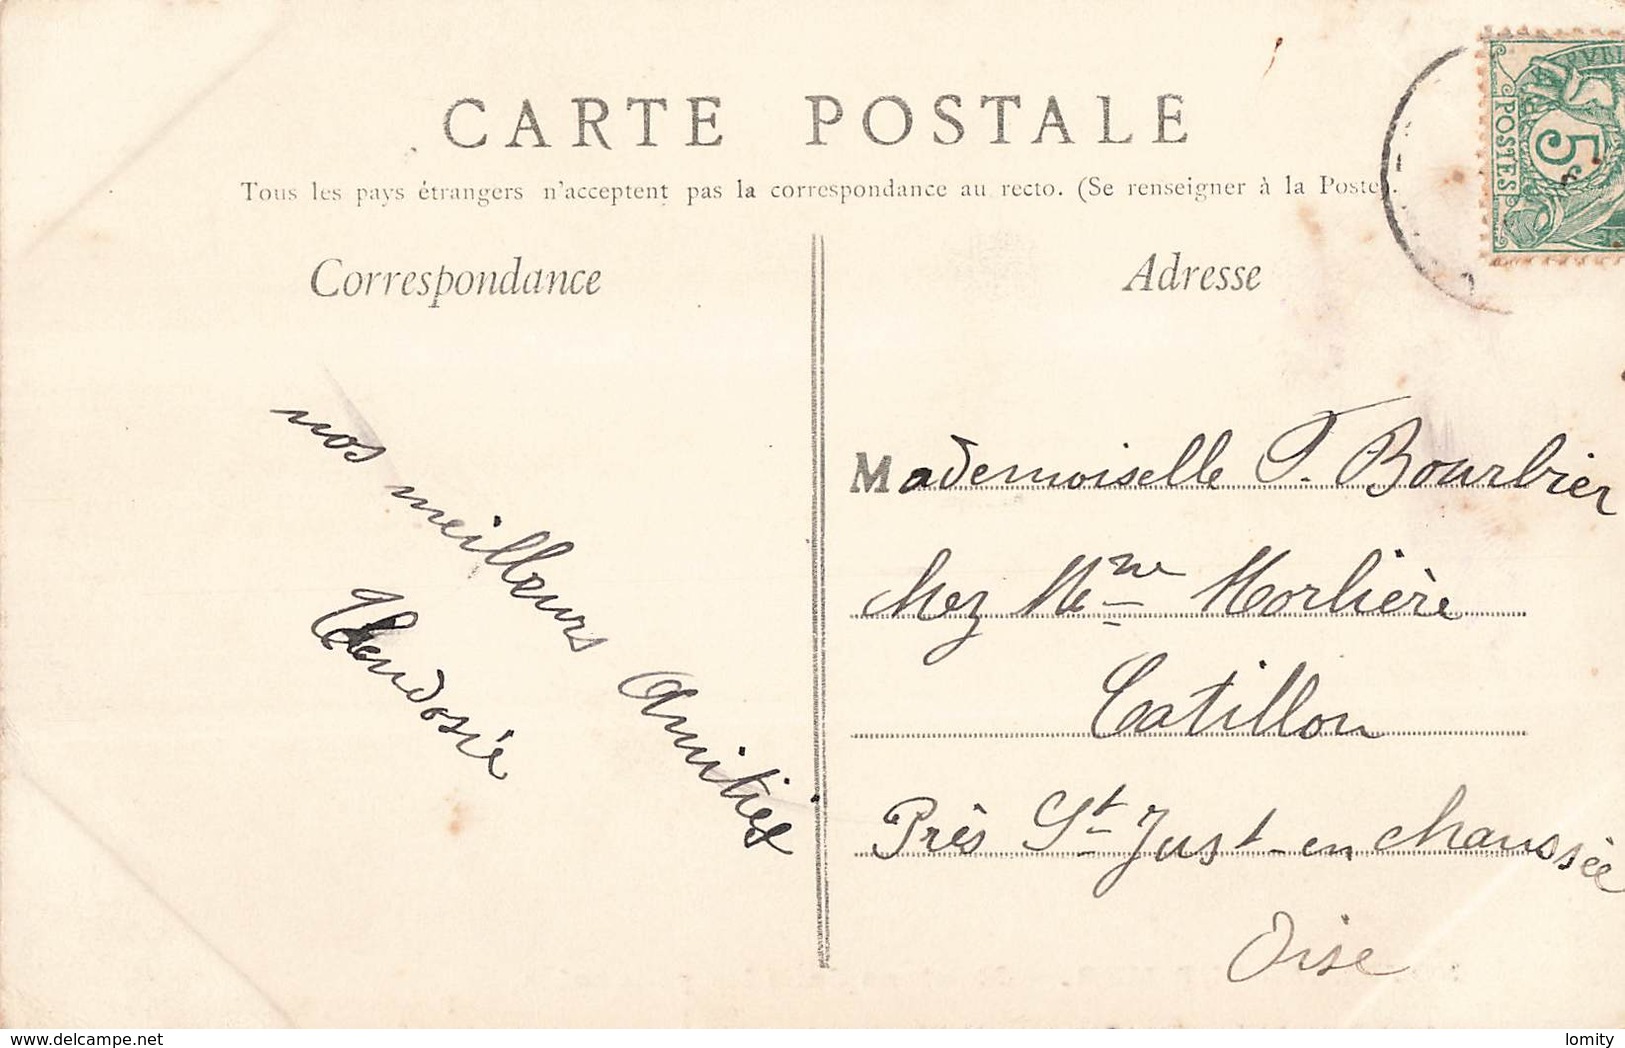 CARTE POSTALE
Tous les pays étrangers n'acceptent pas la correspondance au recto. (Se renseigner à la Poste).
Correspondance
nos meilleurs Amitiés
Adresse
POSTES
5
Mademoiselle P. Bourbier
chez Mme Morlière
Catillon
Près St Just-en chaussée
Oise
https://www.delcampe.net
lomity